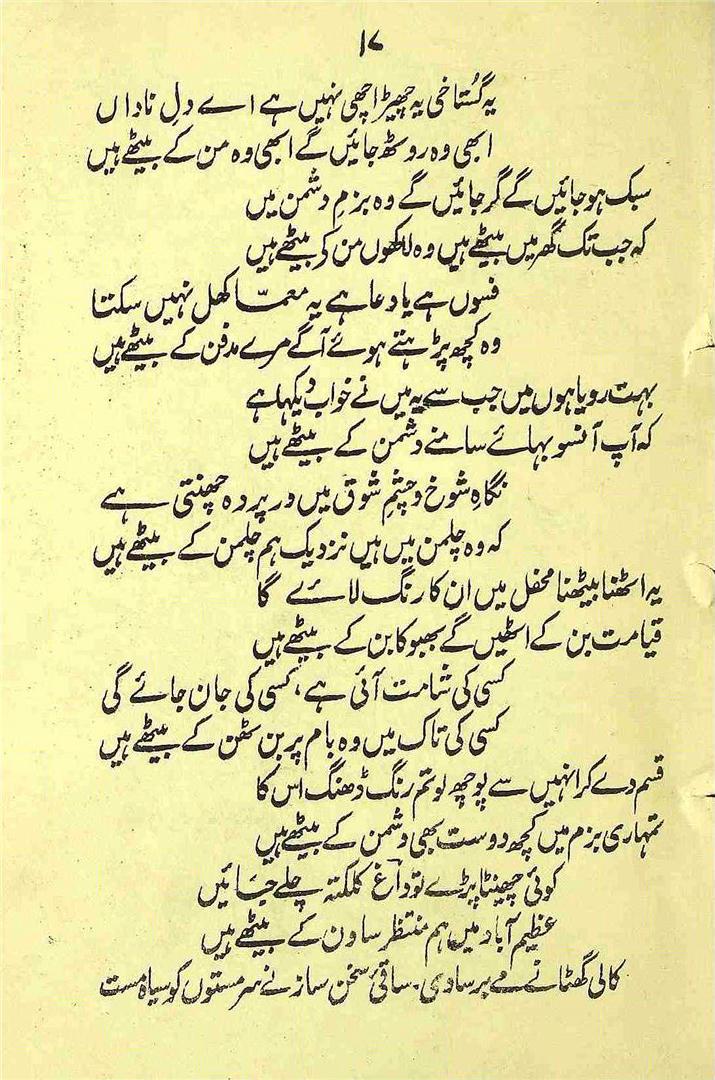 ۱۷
یہ گستاخی یہ چھیڑ اچھی نہیں ہے اے دلِ ناداں
ابھی وہ روٹھ جائیں گے ابھی وہ من کے بیٹھے ہیں
سبک ہو جائیں گے گر جائیں گے وہ بزمِ دشمن میں
کہ جب تک گھر میں بیٹھے ہیں وہ لاکھوں من کی بیٹھے ہیں
فسوں ہے یا دعا ہے یہ معمّا کھل نہیں سکتا
وہ کچھ پڑہتے ہوئے آگے مرے مدفن کے بیٹھے ہیں
بہت رویا ہوں میں جب سے یہ میں نے خواب دیکہا ہے
کہ آپ آنسو بہائے سامنے دشمن کے بیٹھے ہیں
نگاہِ شوخ و چشمِ شوق میں در پردہ چھنتی ہے
کہ وہ چلمن میں ہیں نزدیک ہم چلمن کے بیٹھے ہیں
یہ اٹھنا بیٹھنا محفل میں ان کا رنگ لائے گا
قیامت بن کے اٹھیں گے بھبوکا بن کے بیٹھے ہیں
کسی کی شامت آئی ہے، کسی کی جان جائے گی
کسی کی تاک میں وہ بام پر بن ٹھن کے بیٹھے ہیں
قسم دے کر انہیں سے پوچھ لو تم رنگ ڈھنگ اس کا
تمہاری بزم میں کچھ دوست بھی دشمن کے بیٹھے ہیں
کوئی چھینٹا پڑے تو داغؔ کلکتہ چلے جائیں
عظیم آباد میں ہم منتظر ساون کے بیٹھے ہیں
کالی گھٹا نے مے برسا دی۔ ساقیٔ سخن ساز نے سرمستوں کو سیاہ مست